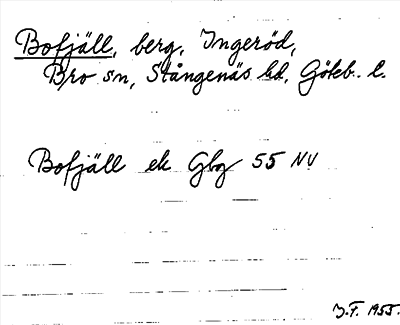 Bofjäll, berg, Ingeröd,
Bro sn, Stångenäs hd, Göteb. l.
Bofjäll ek Gbg 55 NV
J.F. 1955.